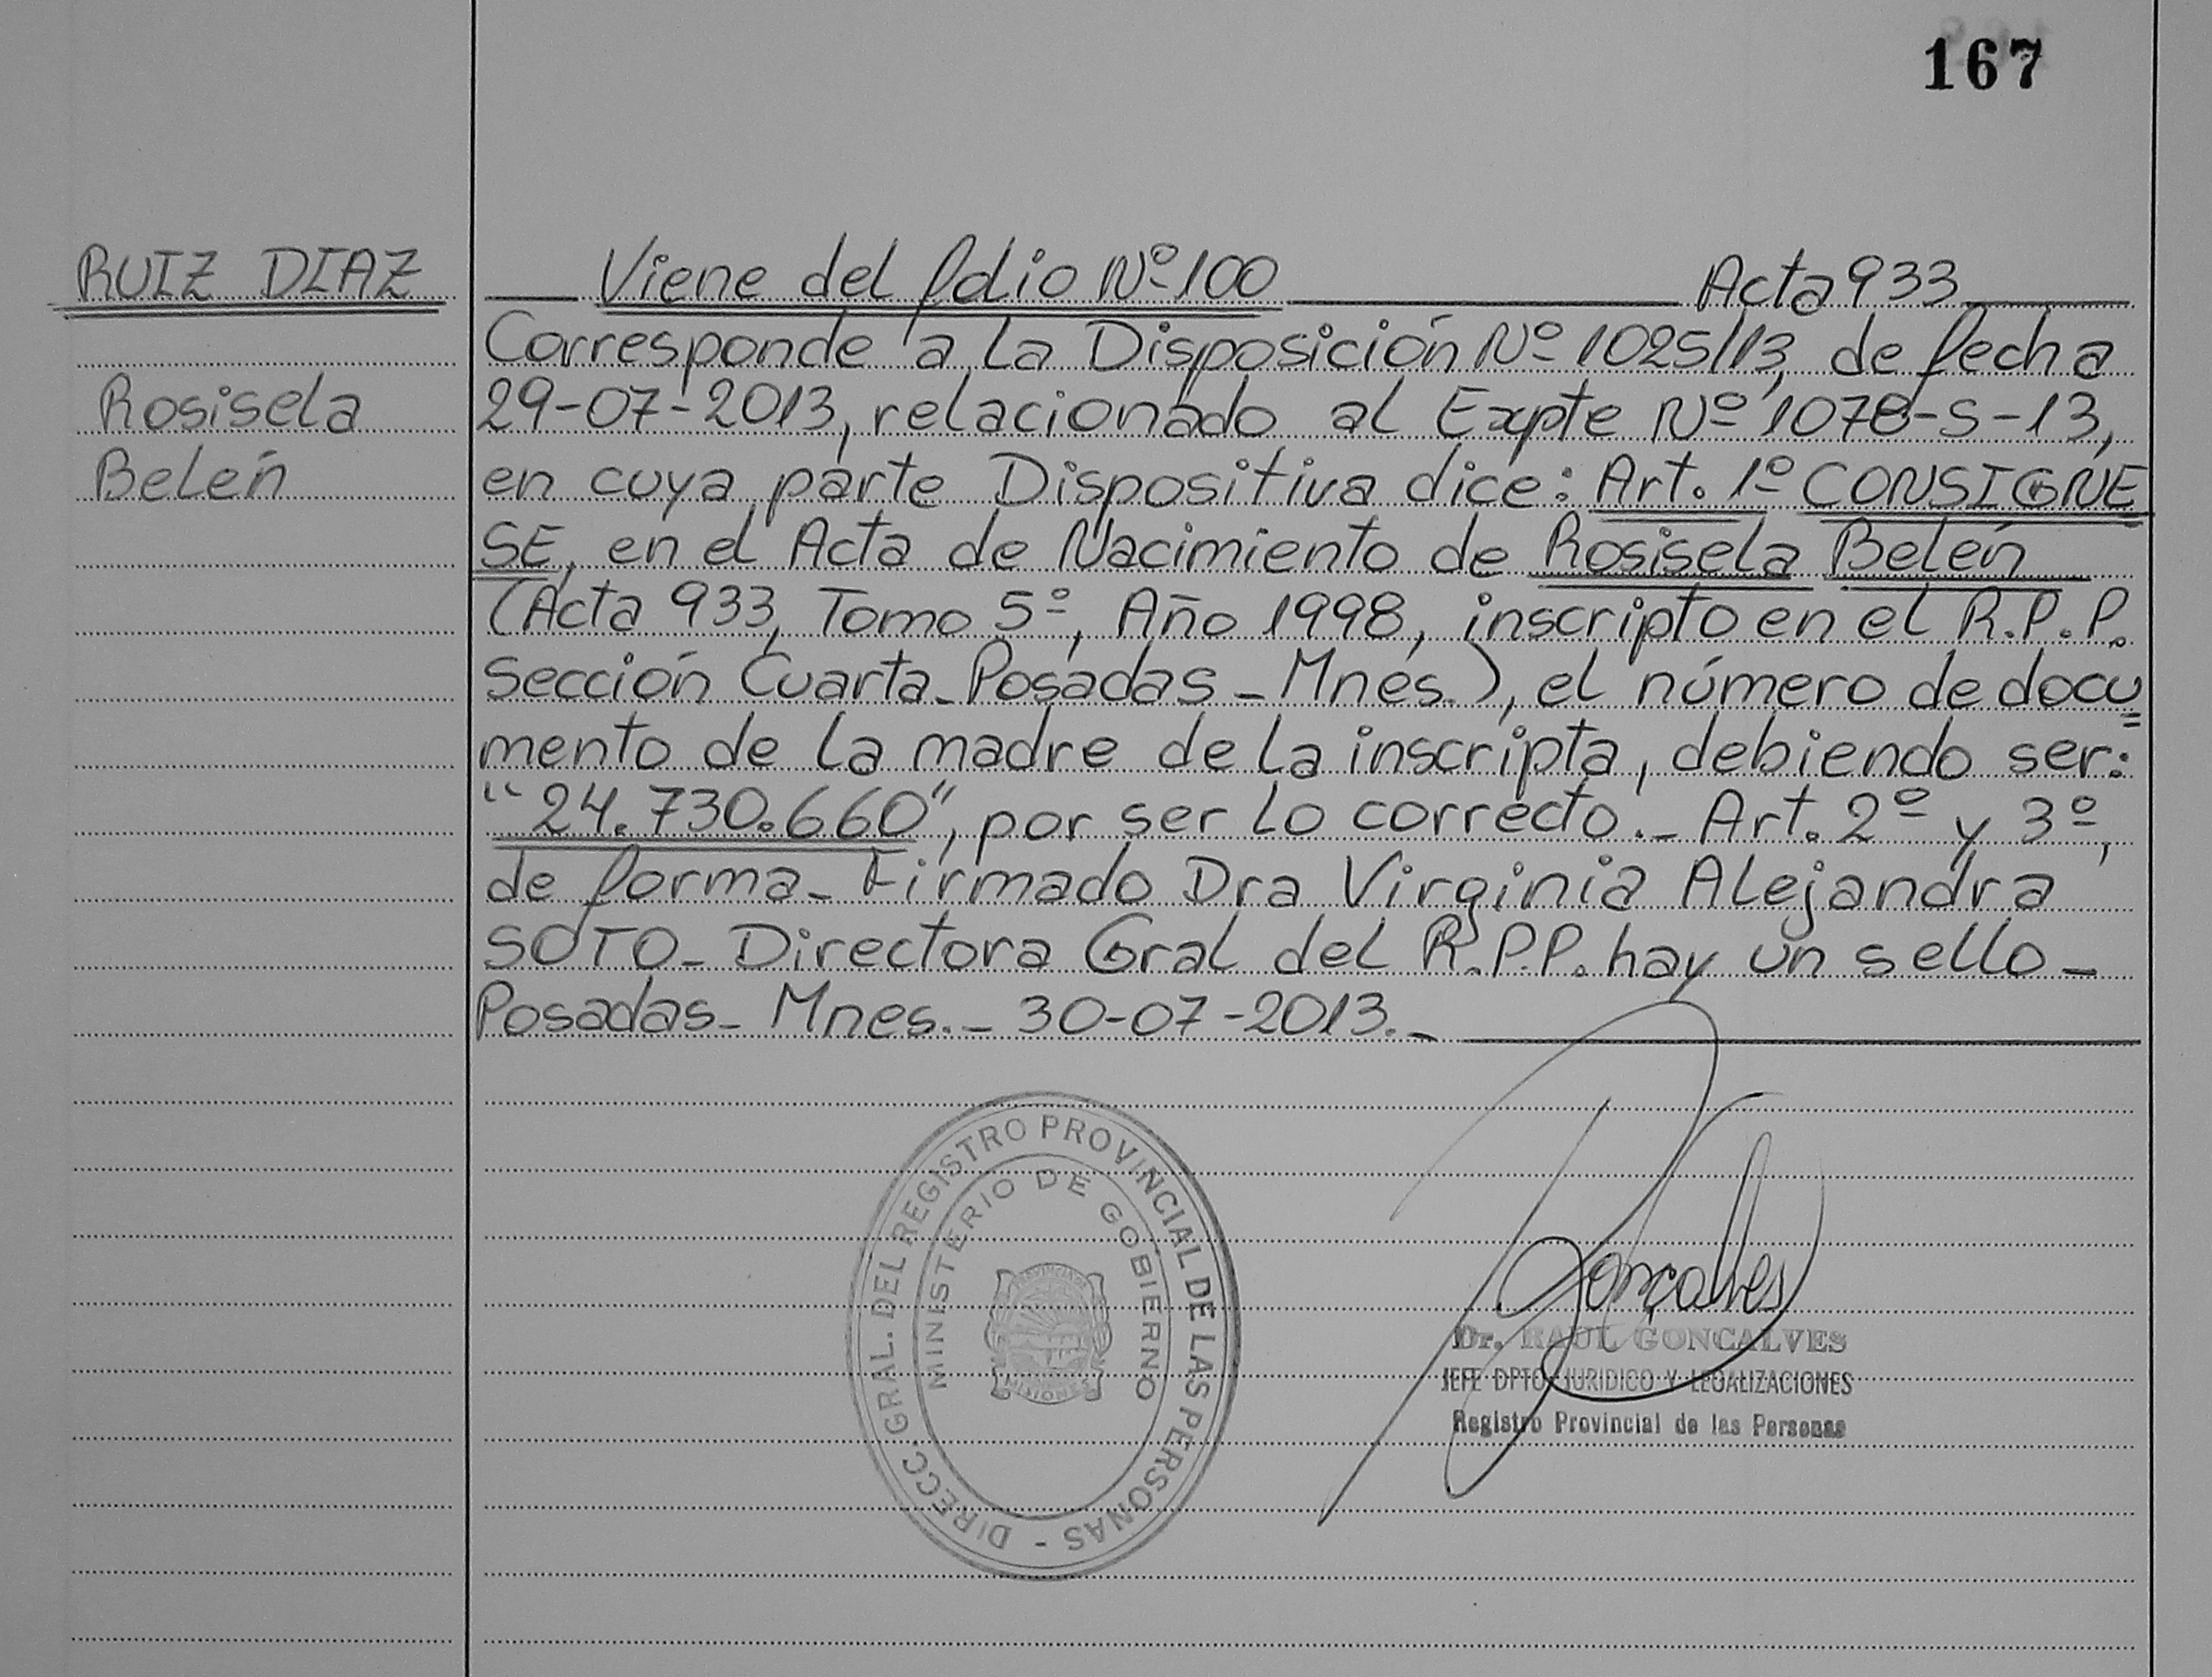 167
RUIZ DIAZ
Rosisela
Belén
Viene del folio Nº 100 Acta 933
Corresponde a la Disposición Nº 1025/13, de fecha
29-07-2013, relacionado al Expte Nº 1078-S-13,
en cuya parte Dispositiva dice: Art. 1º CONSIGNE
SE, en el Acta de Nacimiento de Rosisela Belén
(Acta 933, Tomo 5º, Año 1998, inscripto en el R.P.P.
Sección Cuarta_Posadas_Mnes.), el número de docu=
mento de la madre de la inscripta, debiendo ser:
"24.730.660", por ser lo correcto._ Art. 2º y 3º,
de forma_ Firmado Dra Virginia Alejandra
SOTO_ Directora Gral del R.P.P. hay un sello_
Posadas_ Mnes._ 30-07-2013._
DIRECC. GRAL. DEL REGISTRO PROVINCIAL DE LAS PERSONAS -
MINISTERIO DE GOBIERNO
Gonçalves
Dr. RAUL GONCALVES
JEFE DPTO JURIDICO Y LEGALIZACIONES
Registro Provincial de las Personas